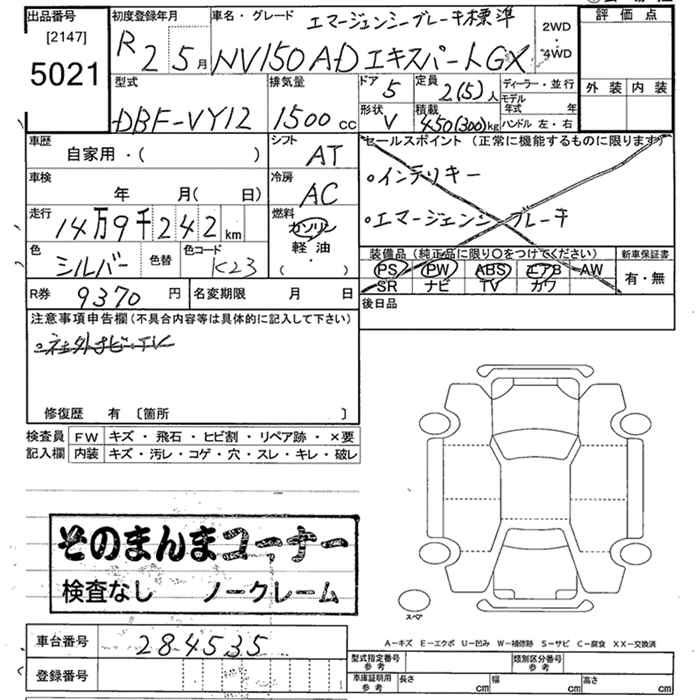 出品番号
[2147]
5021
初度登録年月
R 2 5 月
車名・グレード
エマージェンシーブレーキ標準
NV150 AD エキスパートGX
2WD
・
4WD
評価点
外装 内装
型式
DBF-VY12
排気量
1500 cc
ドア
5
定員
2(5)人
ディーラー・並行
モデル年式 年
形状
V
積載
450(300)kg
ハンドル 左・右
車歴
自家用・( )
シフト
AT
セールスポイント(正常に機能するものに限ります)
・インテリキー
・エマージェンシーブレーキ
車検
年 月( 日)
冷房
AC
走行
14万9千242 km
燃料
ガソリン
軽油
( ・ )
色
シルバー
色替
色コード
K23
装備品(純正品に限り○をつけてください)
PS PW ABS エアB AW
SR ナビ TV カワ
新車保証書
有・無
R券
9370 円
名変期限 月 日
後日品
注意事項申告欄(不具合内容等は具体的に記入して下さい)
・社外ナビ・TV
修復歴 有 〔箇所 〕
検査員記入欄
FW キズ・飛石・ヒビ割・リペア跡・×要
内装 キズ・汚レ・コゲ・穴・スレ・キレ・破レ
そのまんまコーナー
検査なし ノークレーム
スペア
A-キズ E-エクボ U-凹み W-補修跡 S-サビ C-腐食 XX-交換済
車台番号
284535
登録番号
型式指定番号 参考
類別区分番号 参考
車庫証明用 参考
長さ cm 幅 cm 高さ cm